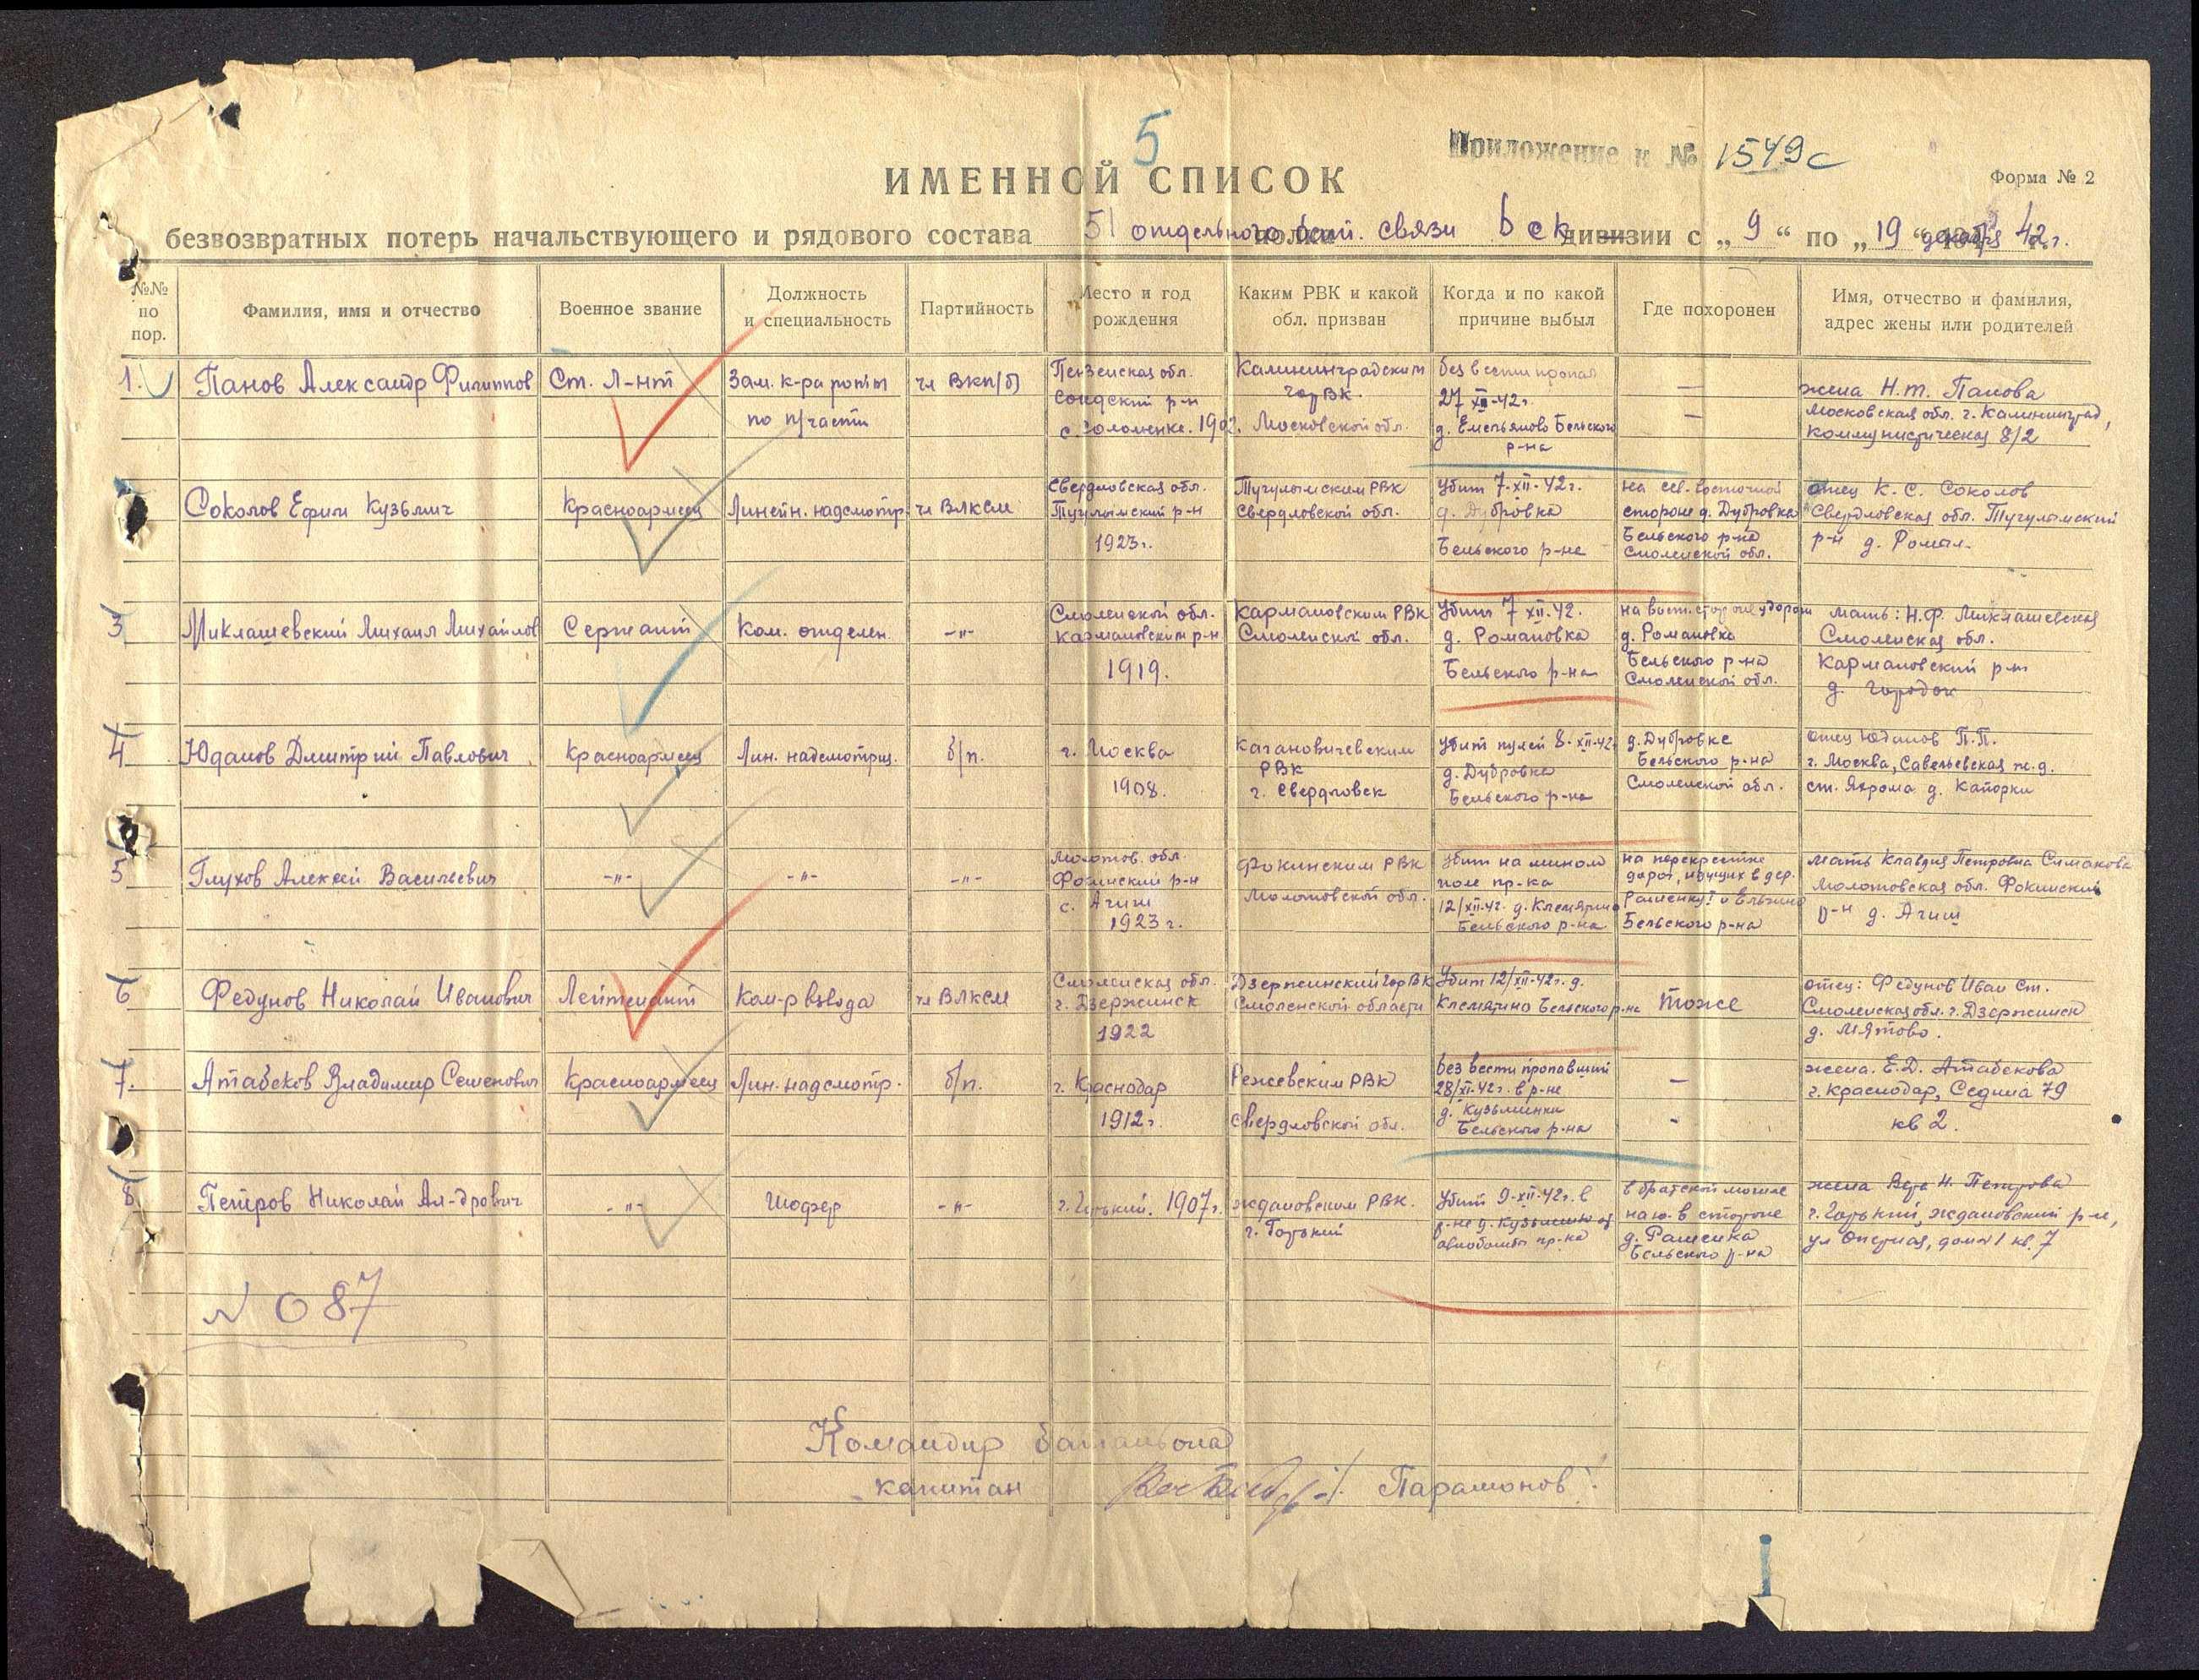 5
Приложение к № 1549с
ИМЕННОЙ СПИСОК
Форма № 2
безвозвратных потерь начальствующего и рядового состава 51 отдельного бат. связи 6 ск дивизии с „ 9 “ по „ 19 “ декабря 42 г.
№№ по пор.
Фамилия, имя и отчество
Военное звание
Должность и специальность
Партийность
Место и год рождения
Каким РВК и какой обл. призван
Когда и по какой причине выбыл
Где похоронен
Имя, отчество и фамилия, адрес жены или родителей
1.
Панов Александр Филиппов
Ст. Л-нт
Зам. к-ра роты
по п/части
чл ВКП(б)
Пензенская обл.
р-н
1902.
Калининградским
гор ВК.
Московской обл.
без вести пропал
27 XII-42 г.
д. Емельяново Бельского
р-на
—
—
жена Н.Т. Панова
Московская обл. г. Калининград,
Коммунистическая 8/2
Соколов Ефим Кузьмич
Красноармеец
Линейн. надсмотр.
чл ВЛКСМ
Свердловская обл.
Тугулымский р-н
1923г.
Тугулымским РВК
Свердловской обл.
Убит 7-XII-42г.
д. Дубровка
Бельского р-не
на сев. восточной
стороне д. Дубровка
Бельского р-на
Смоленской обл.
отец К. С. Соколов
Свердловская обл. Тугулымский
р-н д.
3
Миклашевский Михаил Михайлов
Сержант
Ком. отделен.
-"-
Смоленской обл.
Кармановским р-н
1919.
Кармановским РВК
Смоленской обл.
Убит 7 XII.42.
д. Романовка
Бельского р-на
на вост. стороне у дороги
д. Романовка
Бельского р-на
Смоленской обл.
мать: Н.Ф. Миклашевская
Смоленская обл.
Кармановский р-н
д. Городок
4
Юданов Дмитрий Павлович
Красноармеец
Лин. надсмотрщ.
б/п.
г. Москва
1908.
Кагановичевским
РВК
г. Свердловск
Убит пулей 8-XII-42г
д. Дубровка
Бельского р-на
д. Дубровке
Бельского р-на
Смоленской обл.
отец Юданов П.П.
г. Москва, Савельевская ж.д.
ст. Яхрома д. Капорки
5
Глухов Алексей Васильевич
-"-
-"-
-"-
Молотов. обл.
Фокинский р-н
с. Агиш
1923 г.
Фокинским РВК
Молотовской обл.
Убит на минном
поле пр-ка
12/XII-42г. д. Клемятино
Бельского р-на.
на перекрестке
дорог, идущих в дер.
Бельского р-на
мать Клавдия Петровна Симакова
Молотовская обл. Фокинский
р-н д. Агиш
6
Федунов Николай Иванович
Лейтенант
Ком-р взвода
чл ВЛКСМ
Смоленская обл.
г. Дзержинск
1922
Дзержинский Гор ВК
Смоленской области
Убит 12/XII-42г. д.
Клемятино Бельского р-на
тоже
отец: Федунов Иван Ст.
Смоленская обл. г. Дзержинск
д. Мятово.
7.
Атабеков Владимир Семенович
Красноармеец
Лин. надсмотр.
б/п.
г. Краснодар
1912г.
Режевским РВК
Свердловской обл.
без вести пропавший
28/XI-42г. в р-не
д. Кузьминки
Бельского р-на
—
-
жена. Е.Д. Атабекова
г. Краснодар, Седина 79
кв 2.
8
Петров Николай Ал-дрович
-"-
Шофер
-"-
г. Горький. 1907г.
Ждановским РВК.
г. Горький
Убит 9-XII-42г. в
р-не д. Кузьминки от
авиабомбы пр-ка
в братской могиле
на ю. в стороне
д. Рашенка
Бельского р-на
жена Вера Н. Петрова
г. Горький, Ждановский р-н,
ул Оперная, дом № 1 кв. 7
№ 087
Командир батальона
капитан
/ Парамонов /
1